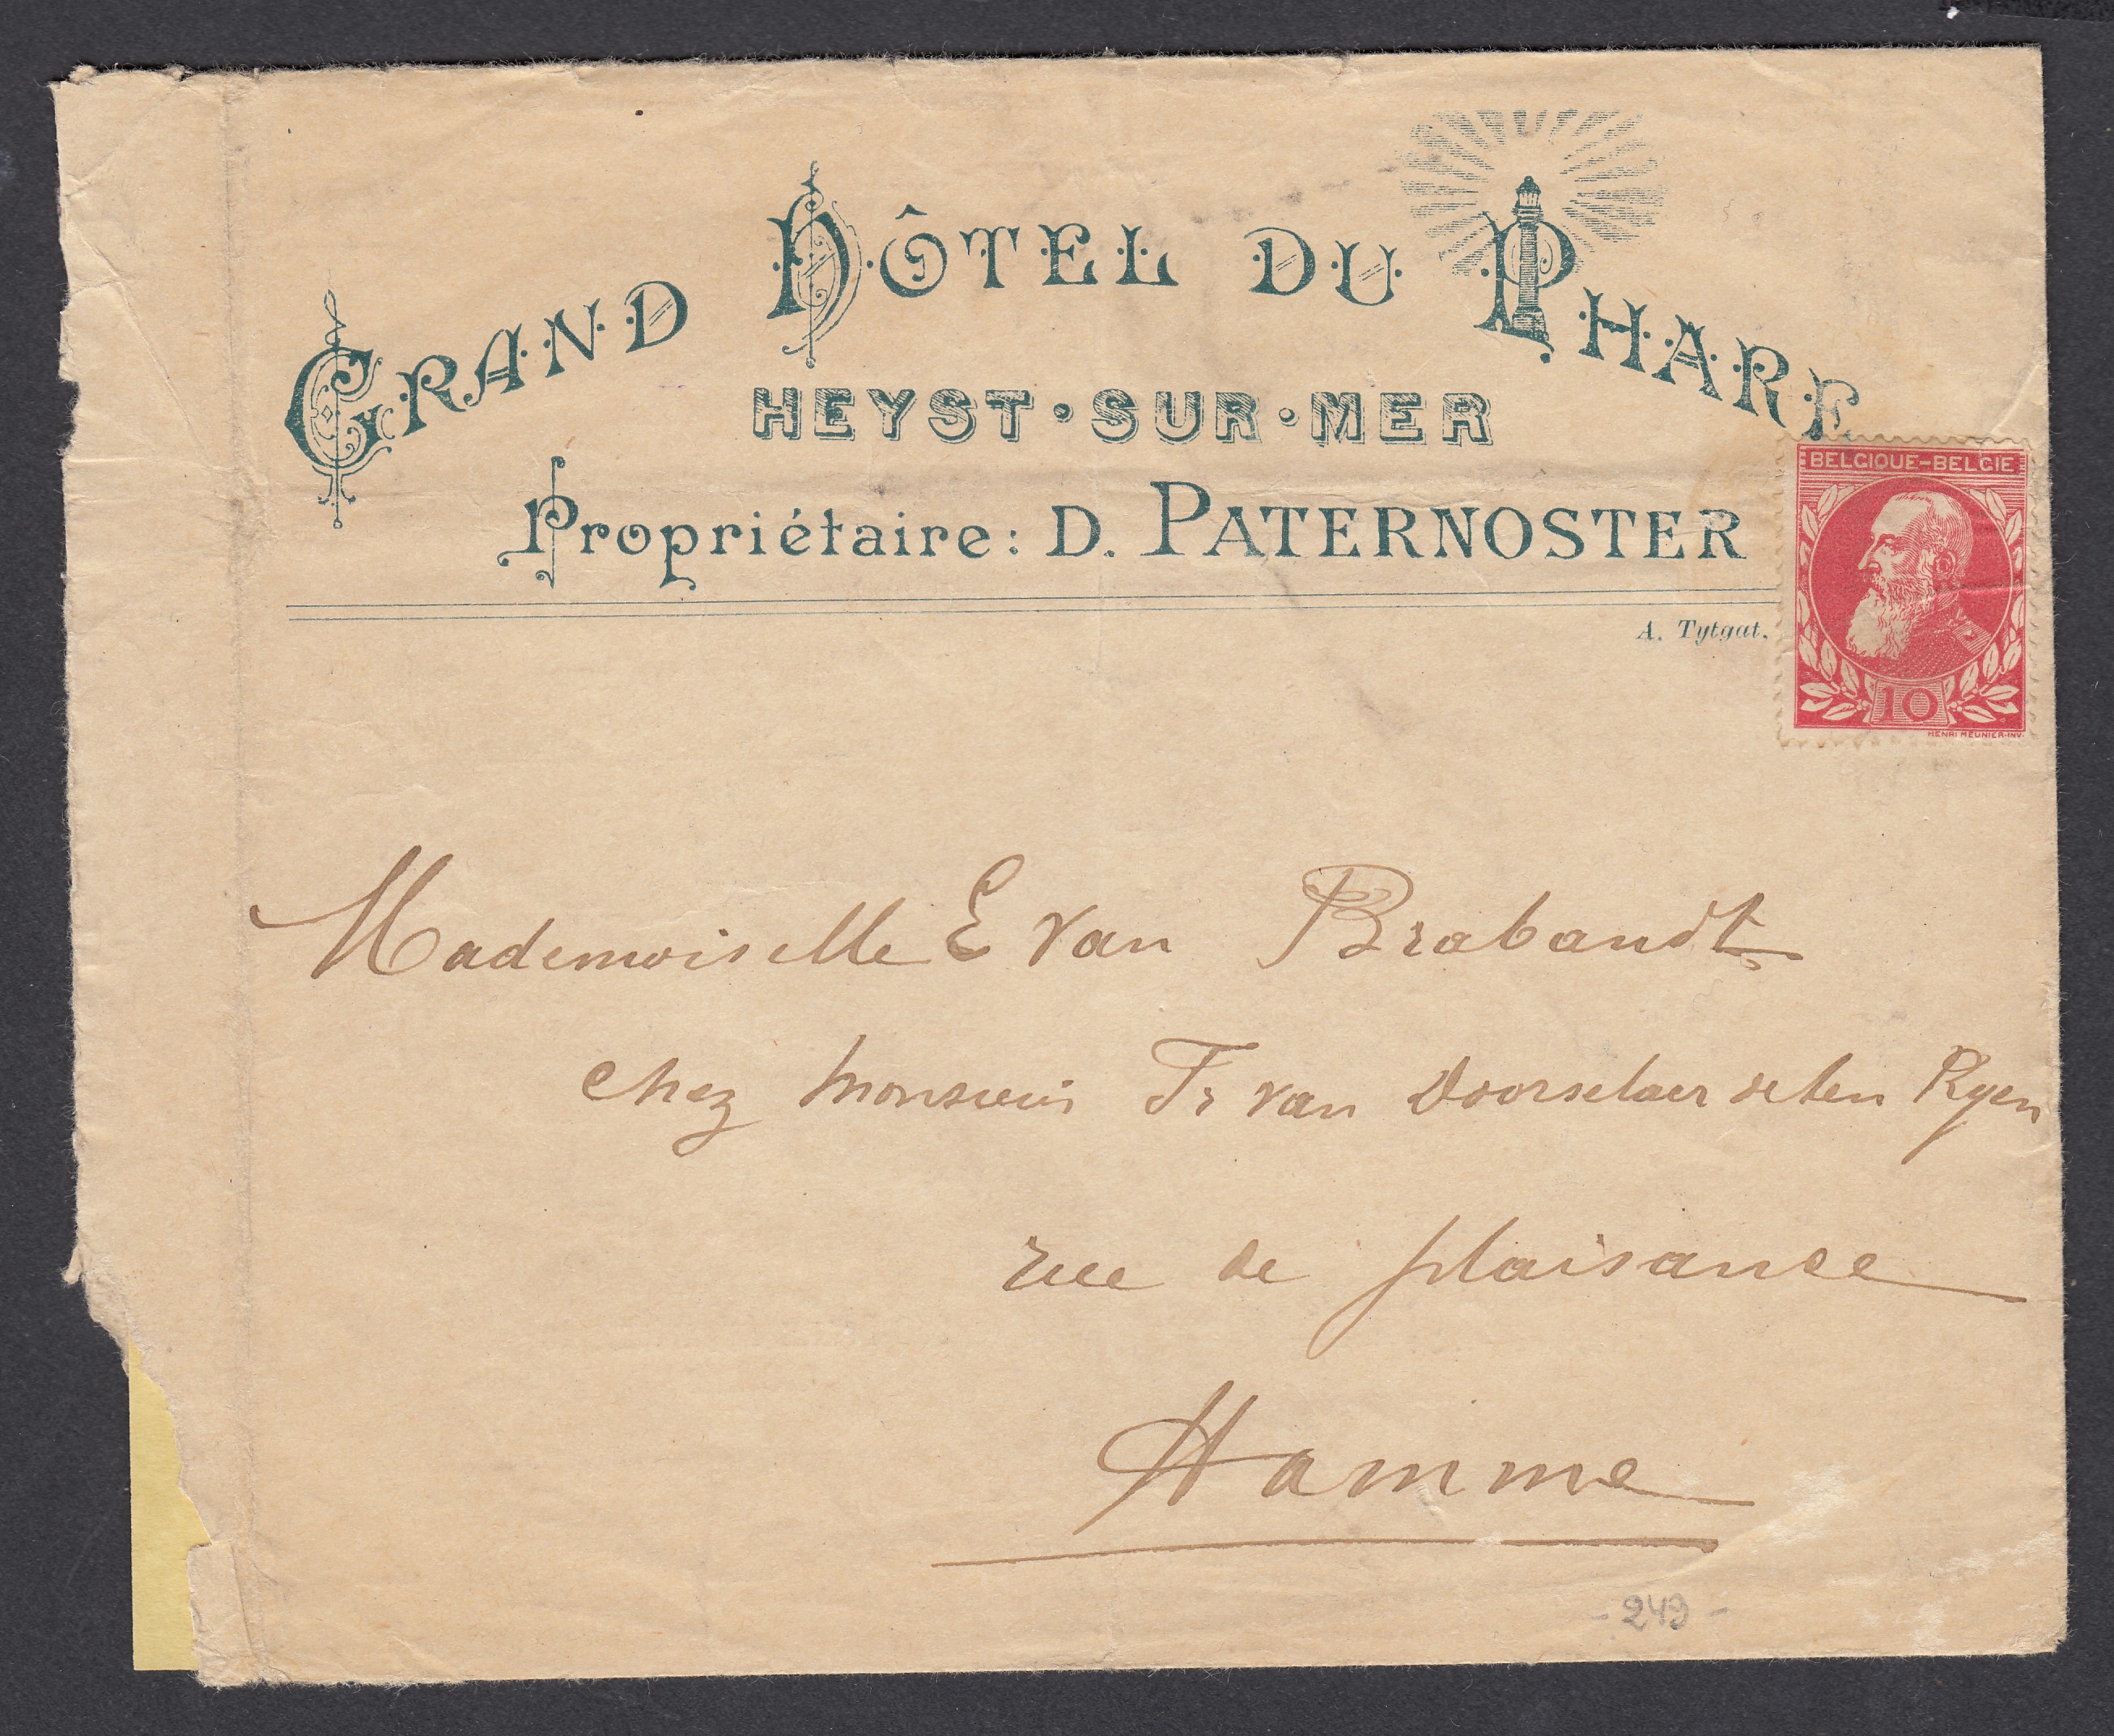 GRAND HÔTEL DU PHARE
HEYST·SUR·MER
Propriétaire: D. PATERNOSTER
A. Tytgat.
BELGIQUE-BELGIE
10
HENRI MEUNIER·INV·
Mademoiselle E van Brabandt
chez Monsieur Fr van Doorselaer de ten Ryen
rue de plaisance
Hamme
- 249 -